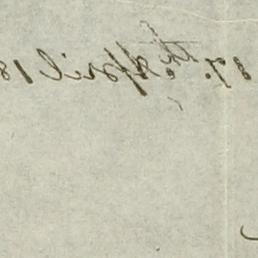 17th April 18